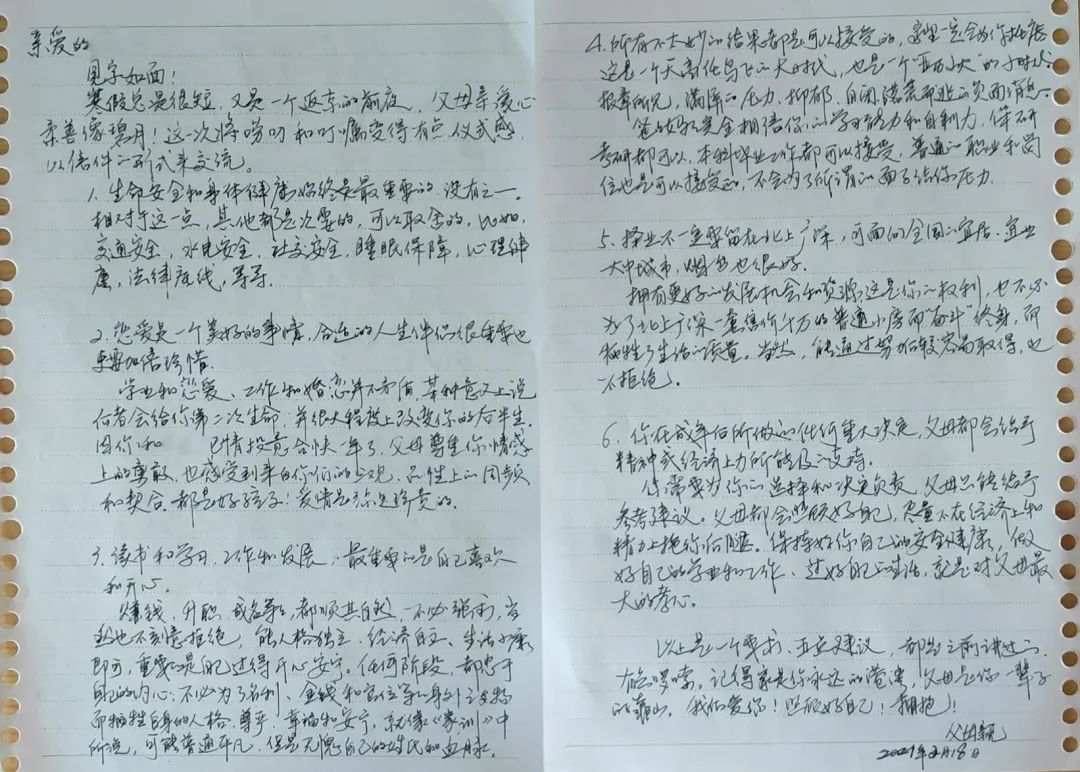 亲爱的
见字如面！
寒假总是很短，又是一个返京的前夜，父母亲爱心
柔善像碧月！这一次将唠叨和叮嘱变得有点仪式感，
以信件的形式来交流。
1. 生命安全和身体健康始终是最重要的，没有之一。
相对于这一点，其他都是次要的，可以取舍的，比如，
交通安全，水电安全，社交安全，睡眠保障，心理健
康，法律底线，等等。
2. 恋爱是一个美好的事情，合适的人生伴侣很重要也
要加倍珍惜。
学业和恋爱、工作和婚恋并不矛盾，某种意义上说
后者会给你第二次生命，并很大程度上改变你的后半生。
因你和 已情投意合快一年了，父母尊重你情感
上的 ，也感受到来自你们的三观、品性上的同频
和契合，都是好孩子！爱情是 珍贵的。
3. 读书和学习、工作和发展，最重要的是自己喜欢
和开心。
赚钱、升职、成名等，都顺其自然，一不必强求，当
然也不刻意拒绝，能人格独立、经济自主、生活小康
即可，重要的是自己过得开心安宁。任何阶段，都忠于
自己的内心；不必为了名利、金钱和高位等等身外之物
而牺牲自身的人格、尊严、幸福和安宁，就像《家训》中
所说，可能普通平凡，但是无愧自己的姓氏和血脉。
4. 所有不太妙的结果都是可以接受的，家里一定会为你托底
这是一个天高任鸟飞的大时代，也是一个 的小时代，
报章所见，满满的压力、抑郁、自闭、 的负面消息。
爸妈完全相信你的学习能力和自制力，保研
考研都可以，本科毕业工作都可以接受，普通的职业和岗
位也是可以接受的，不会为了所谓的面子给你压力。
5. 择业不一定要留在北上广深，可面向全国的宜居、宜业
大中城市， 也很好。
拥有更好的发展机会和资源，这是你的权利，也不必
为了北上广深一套售价千万的普通小房而奋斗终身，而
牺牲了生活的质量。当然，能通过努力较容易取得，也
不拒绝。
6. 你在成年后所做的任何重大决定，父母都会给予
精神或经济上力所能及的支持。
你需要为你的选择和决定负责，父母只能给予
参考建议。父母都会照顾好自己，尽量不在经济上和
精力上拖你后腿。保持好你自己的安全健康，做
好自己的学业和工作、过好自己的生活，就是对父母最
大的孝心。
以上是一个要求、五点建议，都是之前讲过的，
有些啰嗦。记得家是你永远的港湾，父母是你一辈子
的靠山。我们爱你！照顾好自己！拥抱！
父母亲
2021年2月18日